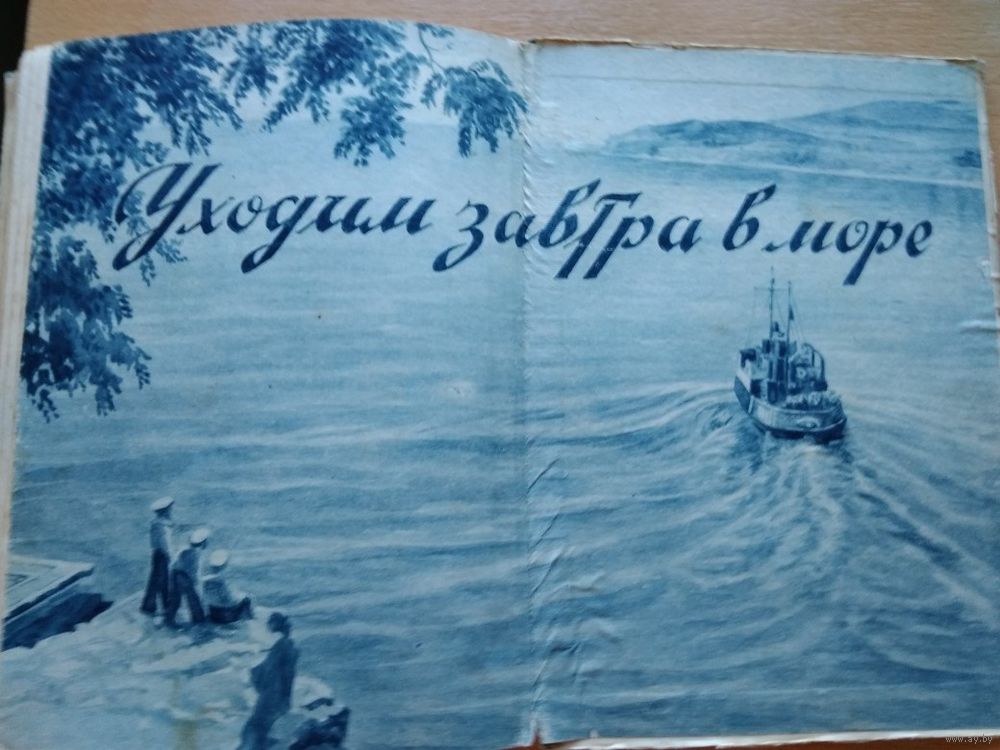 Уходим завтра в море
www.ay.by